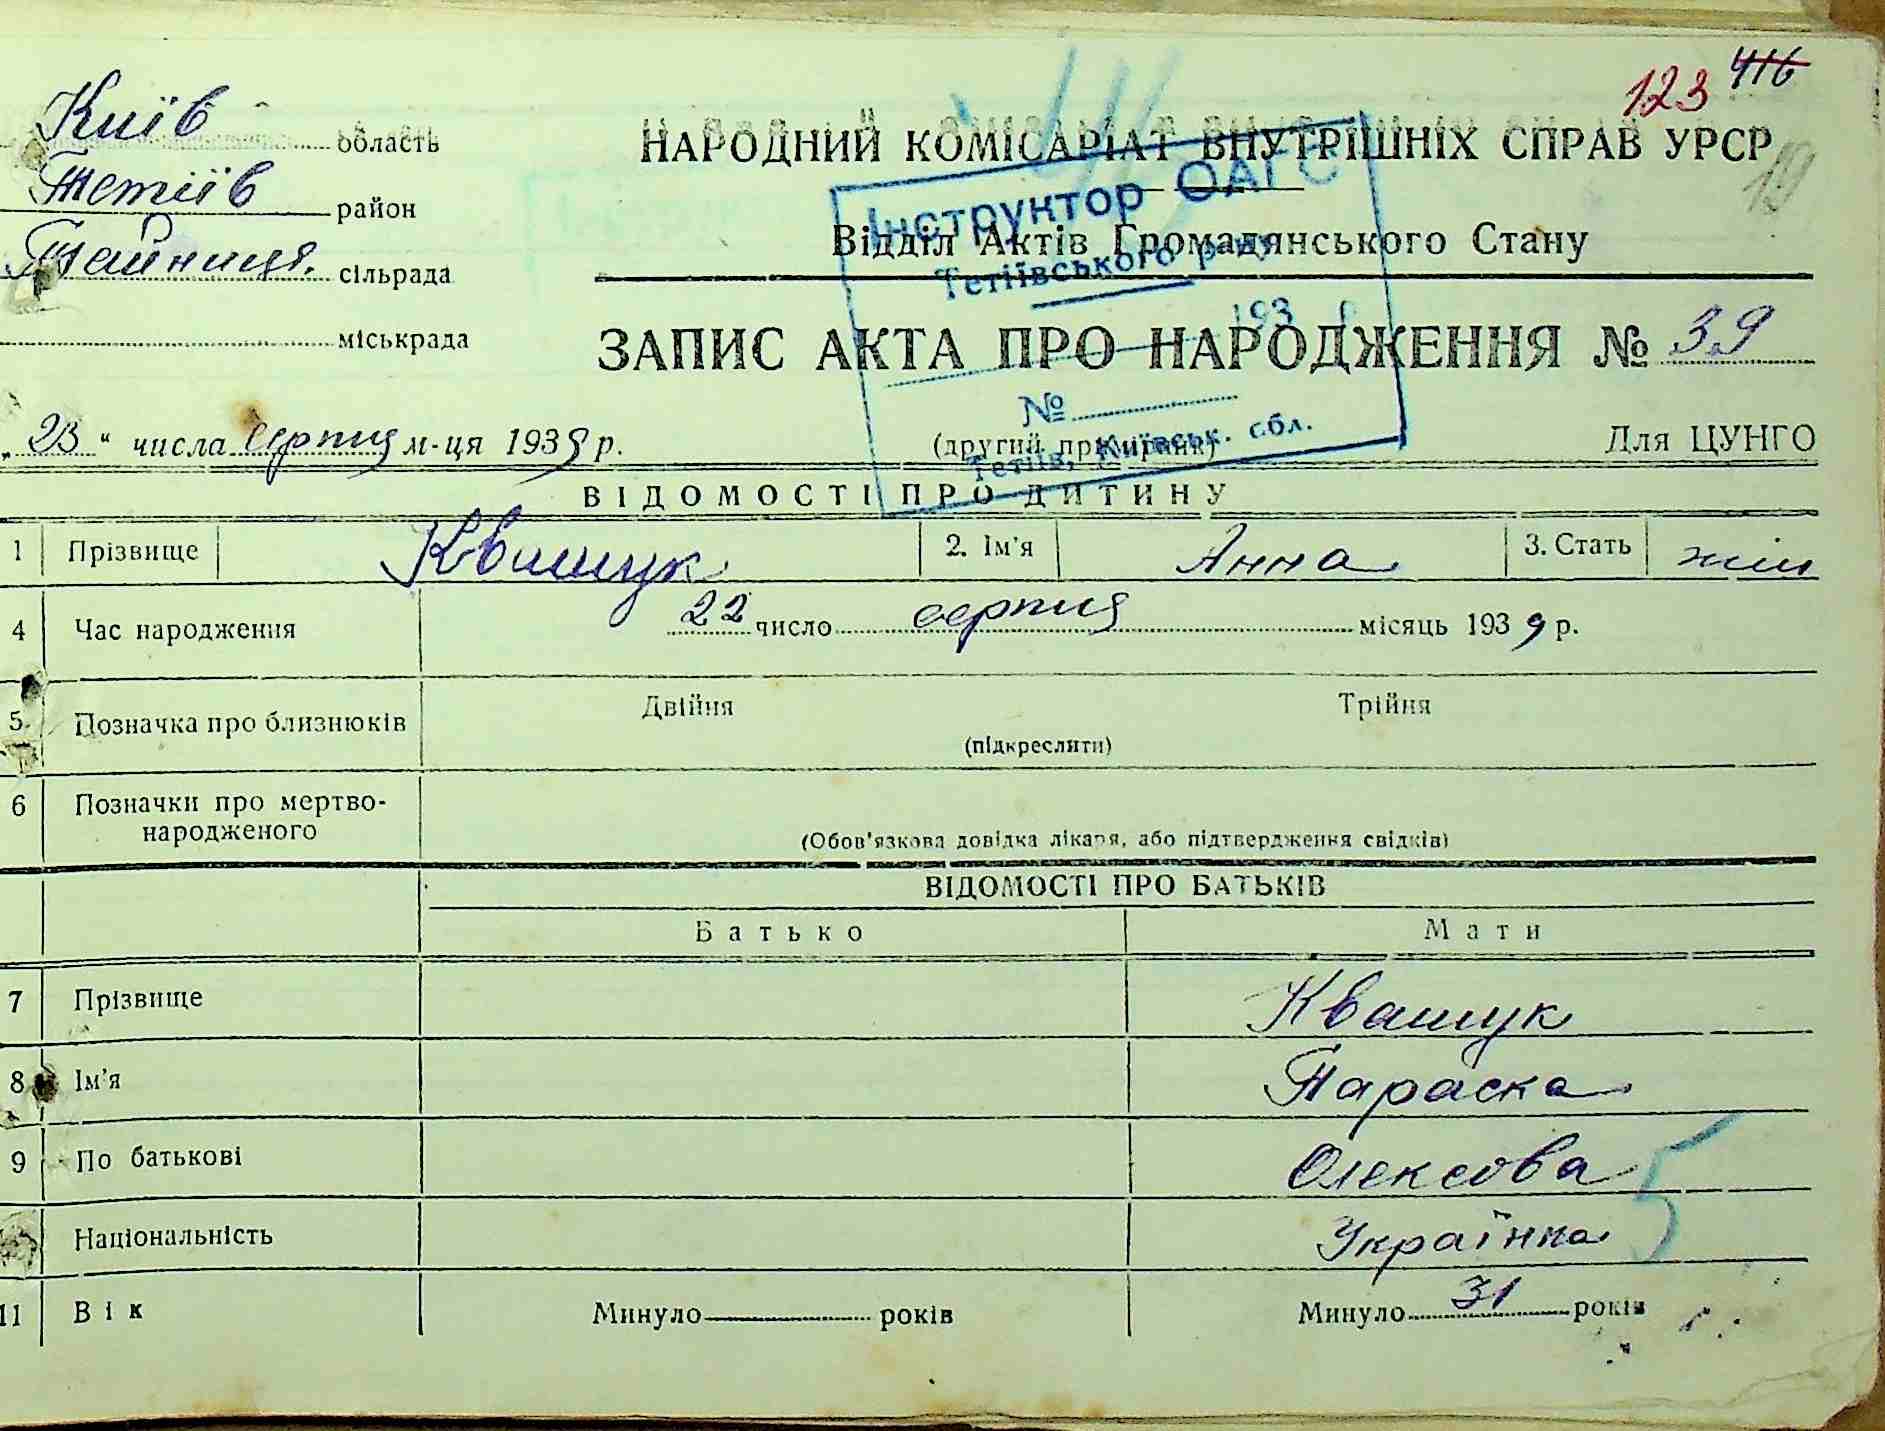 123 416
Київ область
НАРОДНИЙ КОМІСАРІАТ ВНУТРІШНІХ СПРАВ УРСР
19
Тетіїв район
Інструктор ОАГС
Тайниця. сільрада
Відділ Актів Громадянського Стану
Тетіївського р-ну
193 р
міськрада
ЗАПИС АКТА ПРО НАРОДЖЕННЯ № 39
№
„23“ числа серпня м-ця 1939 р.
(другий примірник)
Для ЦУНГО
Тетіїв, Київськ. обл.
ВІДОМОСТІ ПРО ДИТИНУ
1 Прізвище Квашук 2. Ім'я Анна 3. Стать жін
4 Час народження 22 число серпня місяць 1939 р.
5. Позначка про близнюків Двійня Трійня
(підкреслити)
6 Позначки про мертво-
народженого
(Обов'язкова довідка лікаря, або підтвердження свідків)
ВІДОМОСТІ ПРО БАТЬКІВ
Батько Мати
7 Прізвище Квашук
8 Ім'я Параска
9 По батькові Олексова
5
Національність Українка
11 Вік Минуло років Минуло 31 років